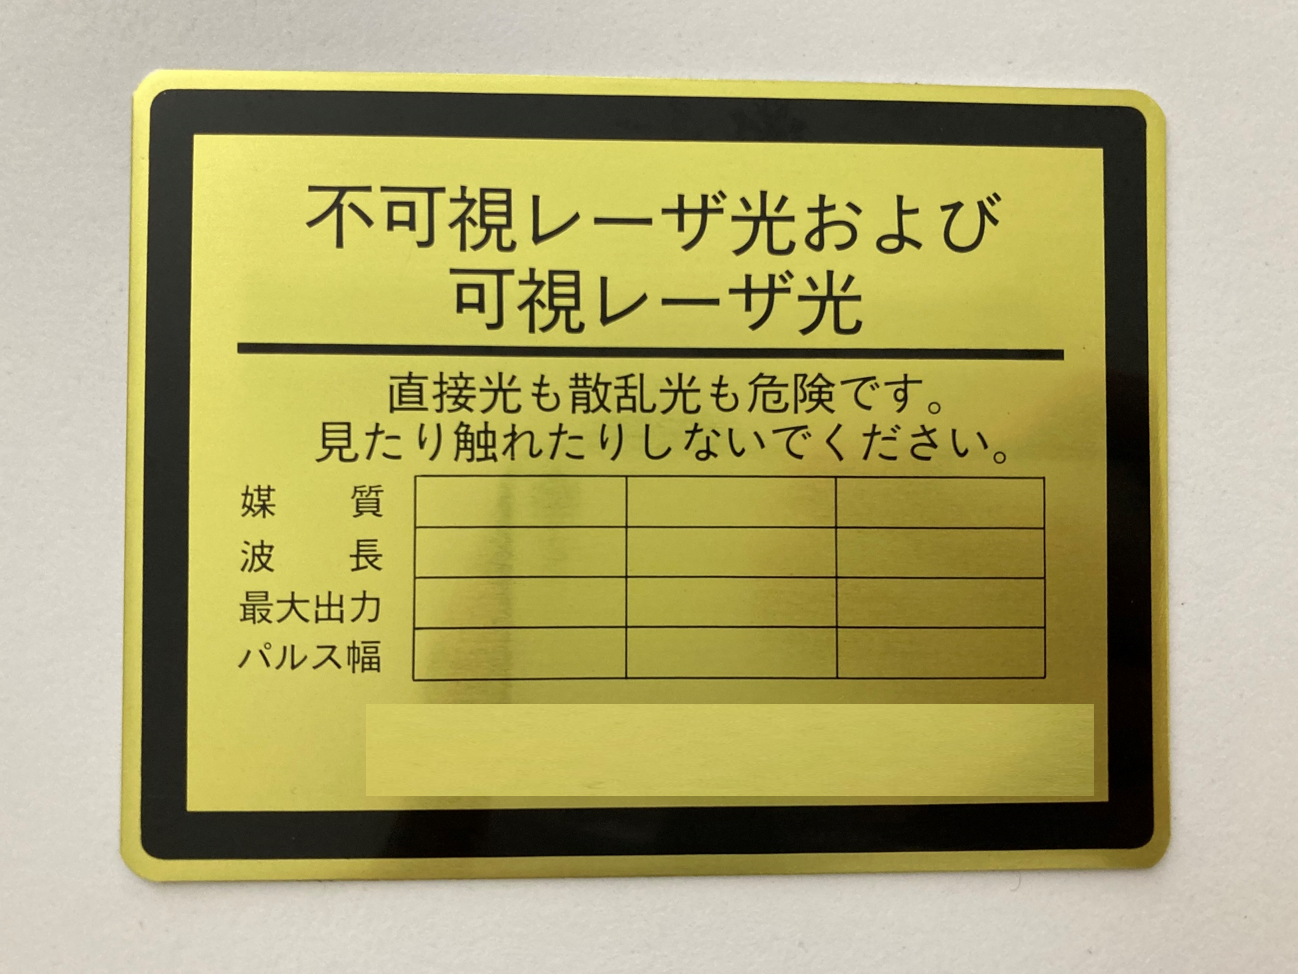 不可視レーザ光および
可視レーザ光
直接光も散乱光も危険です。
見たり触れたりしないでください。
媒質
波長
最大出力
パルス幅